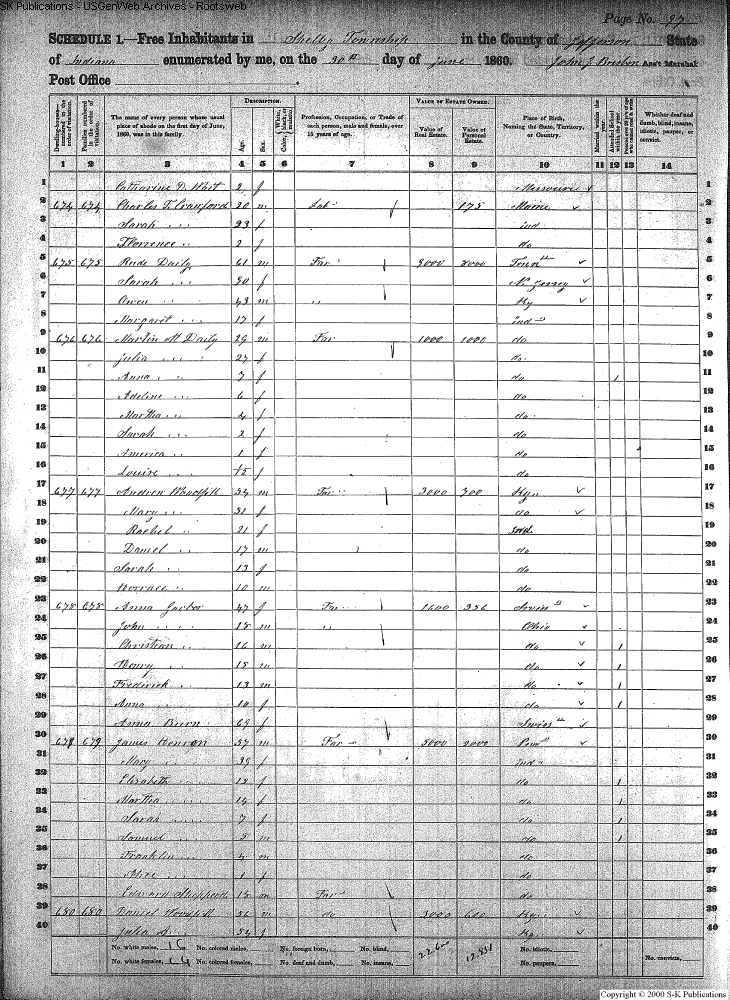 SK Publications - USGenWeb Archives - Rootsweb
Page No. 97
SCHEDULE 1.—Free Inhabitants in Shelby Township in the County of Jefferson State
of Indiana enumerated by me, on the 30th day of June 1860. John J Ass't Marshal
Post Office
DESCRIPTION. VALUE OF ESTATE OWNED.
Dwelling-houses—numbered in the order of visitation. Families numbered in the order of visitation. The name of every person whose usual place of abode on the first day of June, 1860, was in this family. Age. Sex. Color, White, black, or mulatto. Profession, Occupation, or Trade of each person, male and female, over 15 years of age. Value of Real Estate. Value of Personal Estate. Place of Birth, Naming the State, Territory, or Country. Married within the year. Attended School within the year. Whether deaf and dumb, blind, insane, idiotic, pauper, or convict.
1 2 3 4 5 6 7 8 9 10 11 12 13 14
1 Catharine D. 2 f Missouri 1
2 674 674 Charles T. Crawford 30 m Lab 175 Maine 2
3 Sarah " 23 f ind 3
4 Florrence " 2 f do 4
5 675 675 Daily 61 m Far 2000 Tenn 5
6 Sarah " f N. Jersey 6
7 Owen " m " Ky 7
8 Margaret " 17 f ind 8
9 676 676 Martin M Daily 29 m Far 1000 1000 do 9
10 Julia " 27 f do 10
11 Anna " 7 f do 1 11
12 Adeline " 6 f do 12
13 Martha " 4 f do 13
14 Sarah " 2 f do 14
15 America " 1 f do 15
16 Louise " f do 16
17 677 677 Andrew Woodfill 34 m Far 3000 700 Ky 17
18 Mary " 31 f do 18
19 Rachel " 21 f ind 19
20 Daniel " 17 m do 20
21 Sarah " 13 f do 21
22 Horrace " 10 m do 22
23 678 678 Anna 47 f Far 1600 356 23
24 John " 18 m " Ohio 24
25 Christian " 16 m do 1 25
26 Henry " 15 m do 1 26
27 Frederick " 13 m do 1 27
28 Anna " 10 f do 1 28
29 Anna 69 f Swiss 29
30 679 679 James 37 m Far 5000 2000 30
31 Mary " 39 f ind 31
32 Elizabeth " f do 1 32
33 Martha " f do 1 33
34 Sarah " 7 f do 1 34
35 Samuel " 5 m do 1 35
36 Franklin " 4 m do 36
37 " 1 f do 37
38 Edward Shepperd m Far do 38
39 680 680 Daniel Woodfill 56 m do 3000 600 Ky 39
40 Julia A. 54 f Ky 40
No. white males, 16 No. colored males, No. foreign born, No. blind, 22,600 12,831 No. idiotic, No. convicts,
No. white females, No. colored females, No. deaf and dumb, No. insane, No. paupers,
Copyright © 2000 S-K Publications